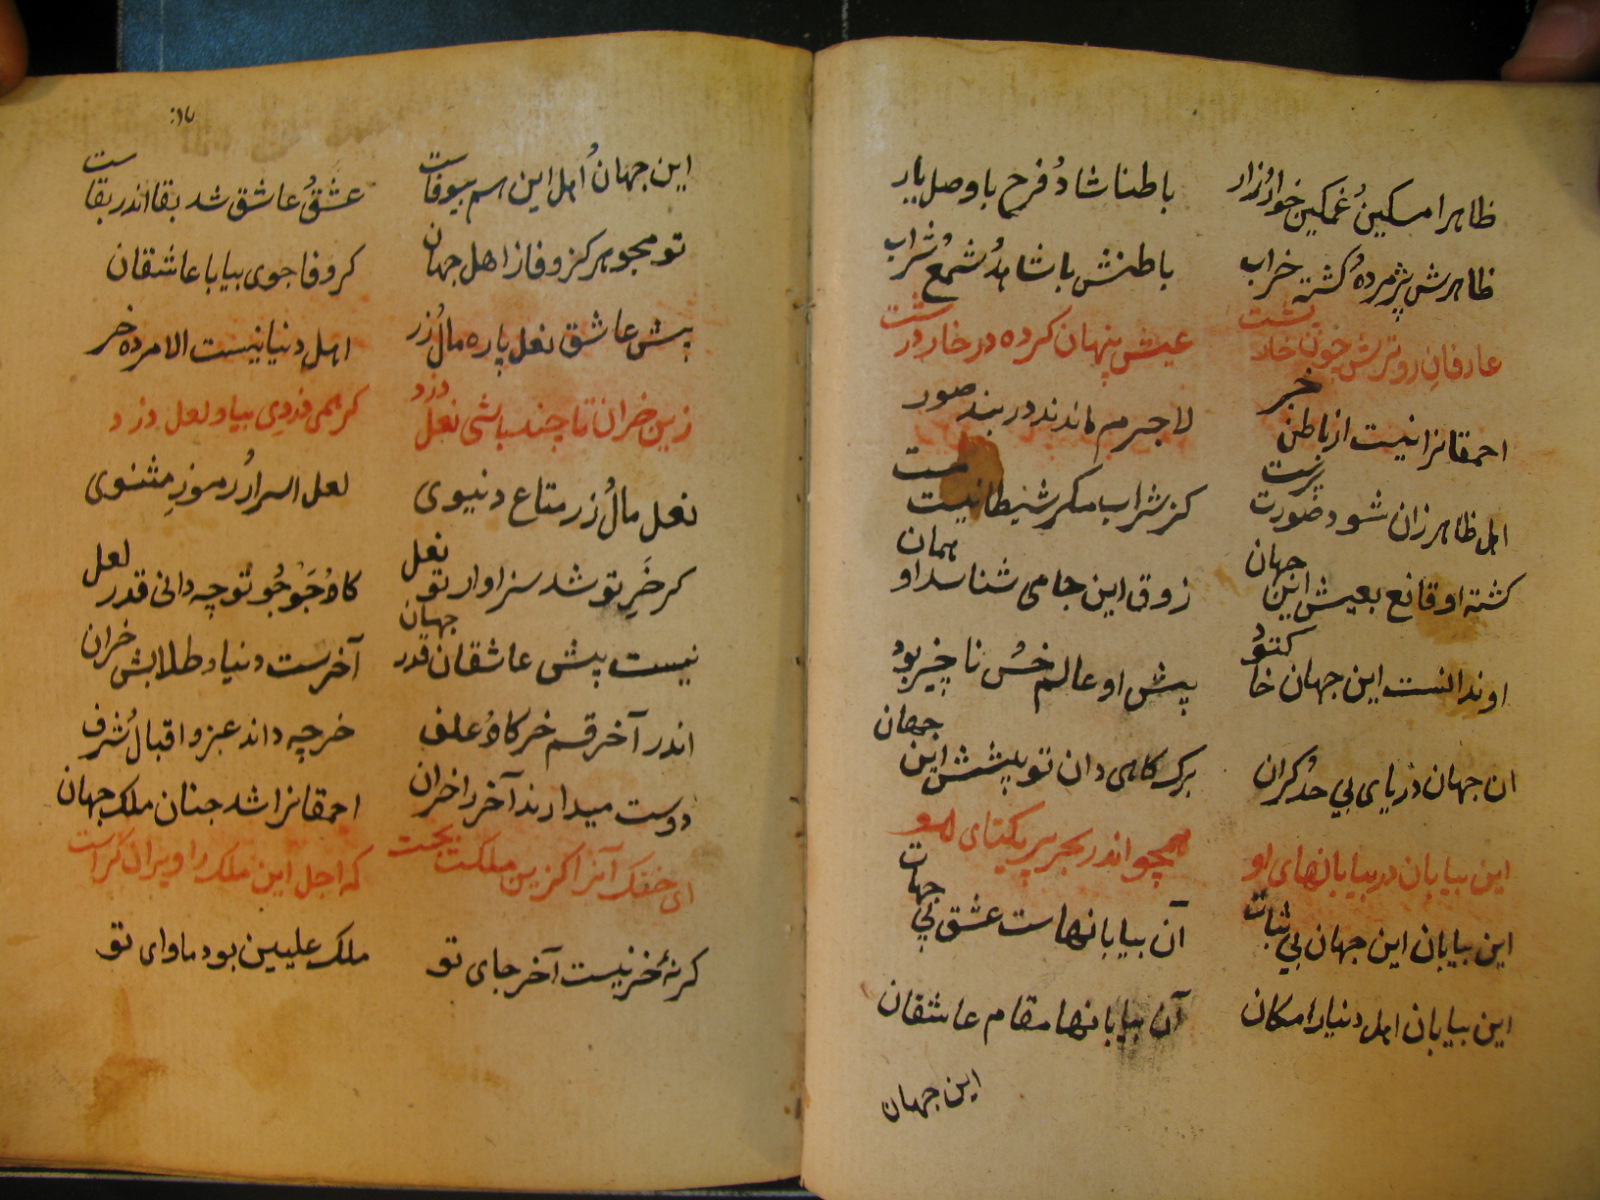 ظاهرا مسکین ُ غمکین خوار ُ زار    باطنا شاد ُ فرح با وصل یار
ظاهرش پژمرده ُ کشته خراب    باطنش با شاهد ُ شمع ُ شراب
عارفان رو ترش چون خار پشت    عیش پنهان کرده در خار درشت
احمقانرا نیست از باطن خبر    لاجرم ماندند در بند صور
اهل ظاهر زان شود صورت پرست    کز شراب مکر شیطانیست مست
کشته او قانع بعیش این جهان    ذوق این جا می شناسد او همان
او ندانست این جهان خا کتود    پیش او عالم خس ُ ناچیز بود
ان جهان دریای بی حد ُ کران    برک کاهی دان تو پیشش این جهان
این بیابان در بیابانهای او    همچو اندر بحر پر یکتای مو
این بیابان این جهان بی ثبات    آن بیابانهاست عشق بی جهات
این بیابان اهل دنیارا مکان    آن بیابانها مقام عاشقان
این جهان
این جهان ُ اهل این هم بیوفاست    عشق ُ عاشق شد بقا اندر بقاست
تو مجو هرکز وفا از اهل جهان    کر وفا جوی بیا با عاشقان
پیش عاشق نعل پاره مال ُ زر    اهل دنیا نیست الا مرده خر
زین خران تا چند باشی نعل دزد    کر همی دزدی بیا و لعل دزد
نعل مال ُ زر متاع دنیوی    لعل اسرار ُ رموز مثنوی
کر خر تو شد سزاوار تو نعل    کاه ُ جو جو تو چه دانی قدر لعل
نیست پیش عاشقان قدر جهان    آخرست دنیا و طلابش خران
اندر آخر قسم خر کاه ُ علف    خر چه داند عز و اقبال ُ شرف
دوست میدارند آخر را خران    احمقانرا شد جنان ملک جهان
ای خنک آنرا کزین ملکت بجست    که اجل این ملک را ویران کراست
کر نه ٔ خر نیست آخر جای تو    ملک علیین بود ماوای تو